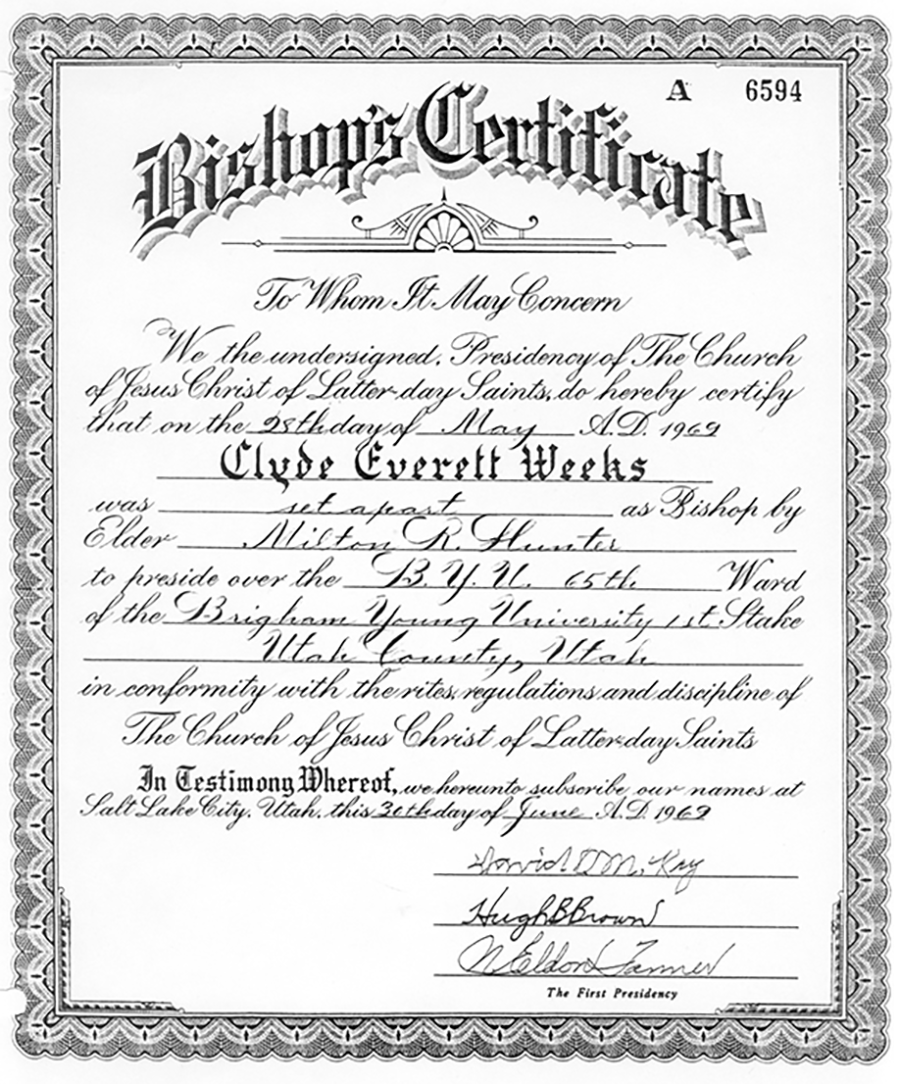 A 6594
Bishop's Certificate
To Whom It May Concern
We the undersigned, Presidency of The Church
of Jesus Christ of Latter-day Saints, do hereby certify
that on the 28th day of May A.D. 1969
Clyde Everett Weeks
was set apart as Bishop by
Elder Milton R. Hunter
to preside over the B.Y.U. 65th Ward
of the Brigham Young University 1st Stake
Utah County, Utah
in conformity with the rites, regulations and discipline of
The Church of Jesus Christ of Latter-day Saints
In Testimony Whereof, we hereunto subscribe our names at
Salt Lake City, Utah, this 30th day of June A.D. 1969
David O McKay
Hugh B Brown
N Eldon Tanner
The First Presidency